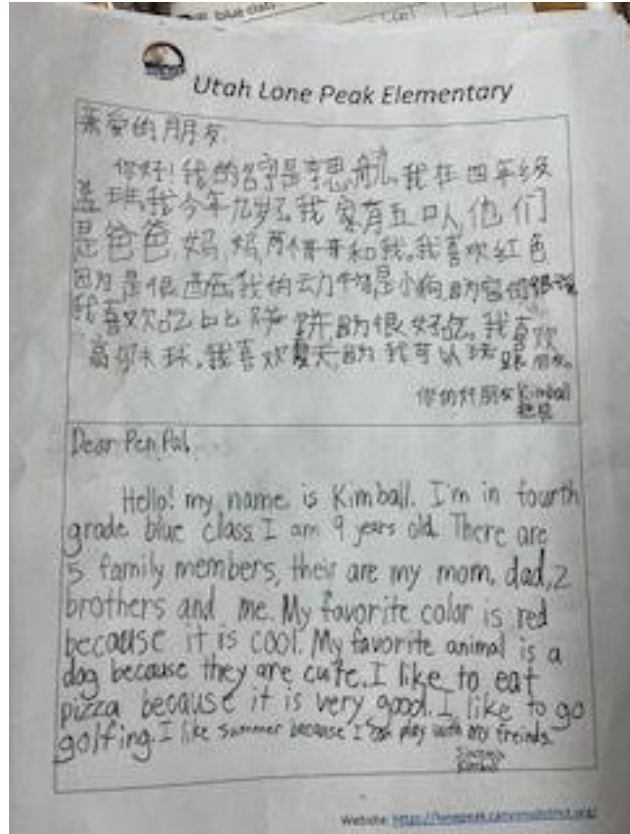 blue class
Utah Lone Peak Elementary
亲爱的朋友
你好!我的名字是李思航,我在四年级
蓝班,我今年九岁了,我家有五口人,他们
是爸爸,妈妈,两个哥哥和我,我喜欢红色
因为是很酷,我的动物是小狗,
我喜欢吃比比萨饼 很好吃。我喜欢
高尔夫球,我喜欢夏天, 我可以 跟朋友。
你的好朋友Kimball
Dear Pen Pal,
Hello! my name is Kimball. I'm in fourth
grade blue class I am 9 years old There are
5 family members, their are my mom, dad,2
brothers and me. My favorite color is red
because it is cool. My favorite animal is a
dog because they are cute. I like to eat
pizza because it is very good. I like to go
golfing. I like summer because I can play with my freinds.
Kimball
Website: